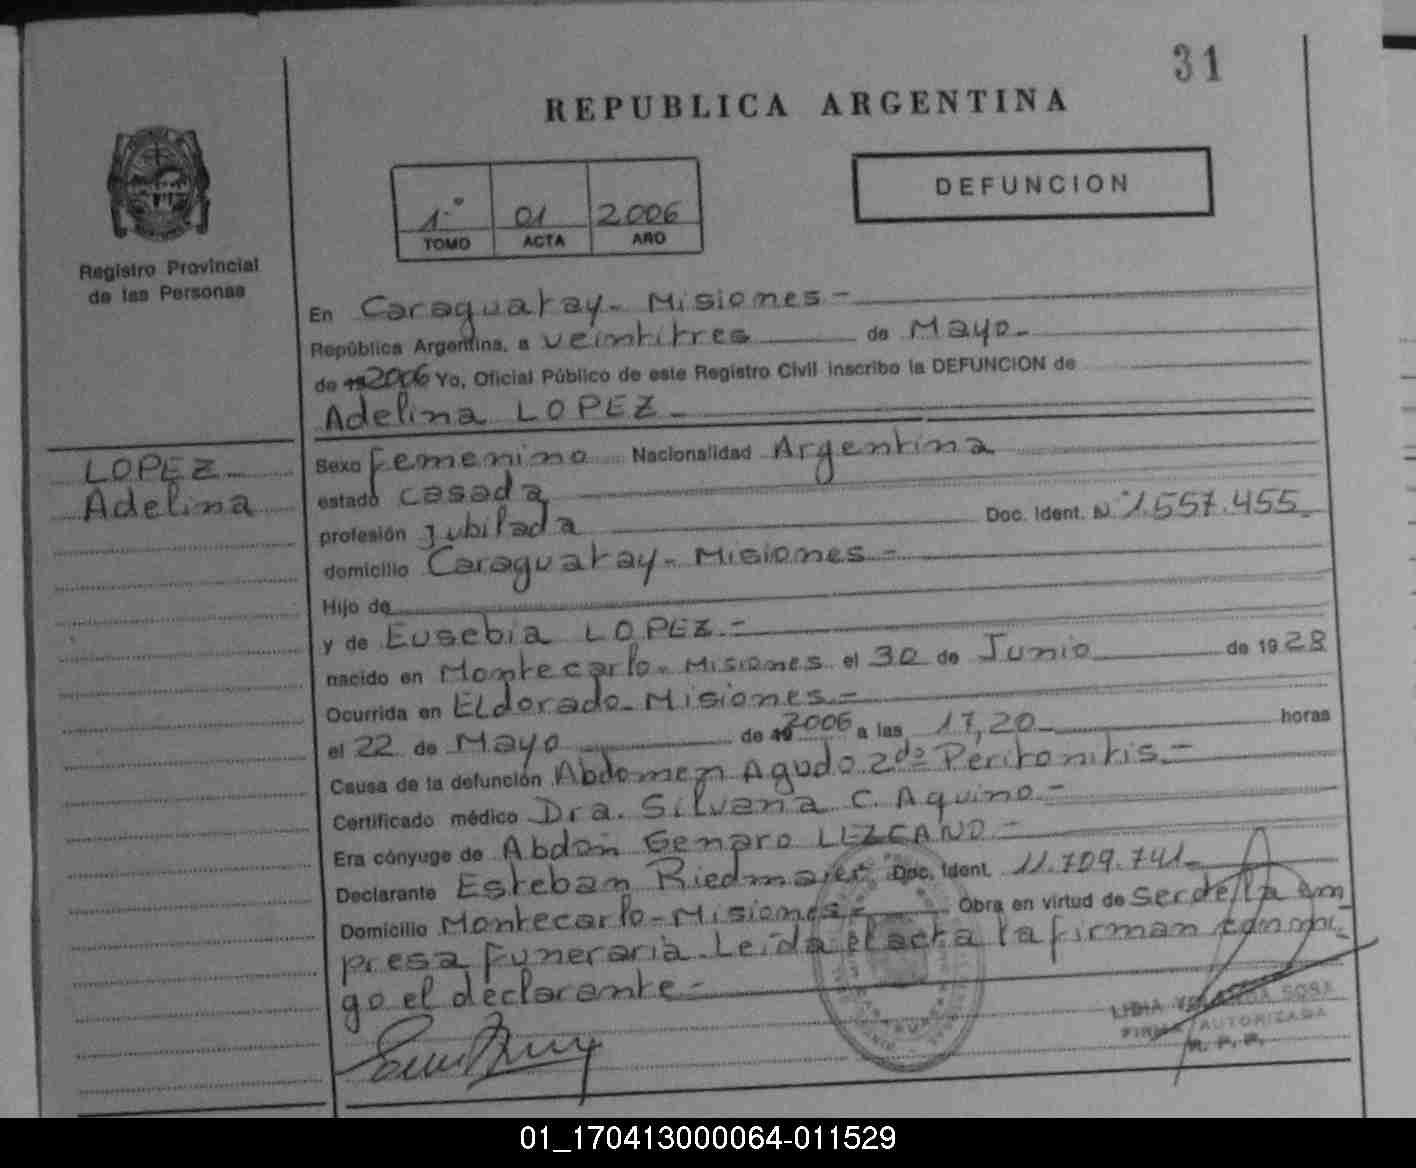 31
REPUBLICA ARGENTINA
1º 01 2006
TOMO ACTA AÑO
DEFUNCION
Registro Provincial
de las Personas
LOPEZ
Adelina
En Caraguatay - Misiones -
República Argentina, a veintitres de Mayo -
de 19 2006 Yo, Oficial Público de este Registro Civil inscribo la DEFUNCION de
Adelina LOPEZ -
Sexo femenino Nacionalidad Argentina
estado casada
profesión Jubilada Doc. Ident. Nº 1.557.455 -
domicilio Caraguatay - Misiones -
Hijo de
y de Eusebia LOPEZ -
nacido en Montecarlo - Misiones el 30 de Junio de 1928
Ocurrida en Eldorado - Misiones -
el 22 de Mayo de 19 2006 a las 17,20 horas
Causa de la defunción Abdomen Agudo 2do Peritonitis -
Certificado médico Dra. Silvana C. Aquino -
Era cónyuge de Abdón Genaro LEZCANO -
Declarante Esteban Riedmaier Doc. Ident. 11.709.741 -
Domicilio Montecarlo - Misiones - Obra en virtud de ser de la em
presa funeraria. Leída el acta la firman conmi-
go el declarante -
LIDIA YOLANDA SOSA
FIRMA AUTORIZADA
R. P. P.
01_170413000064-011529